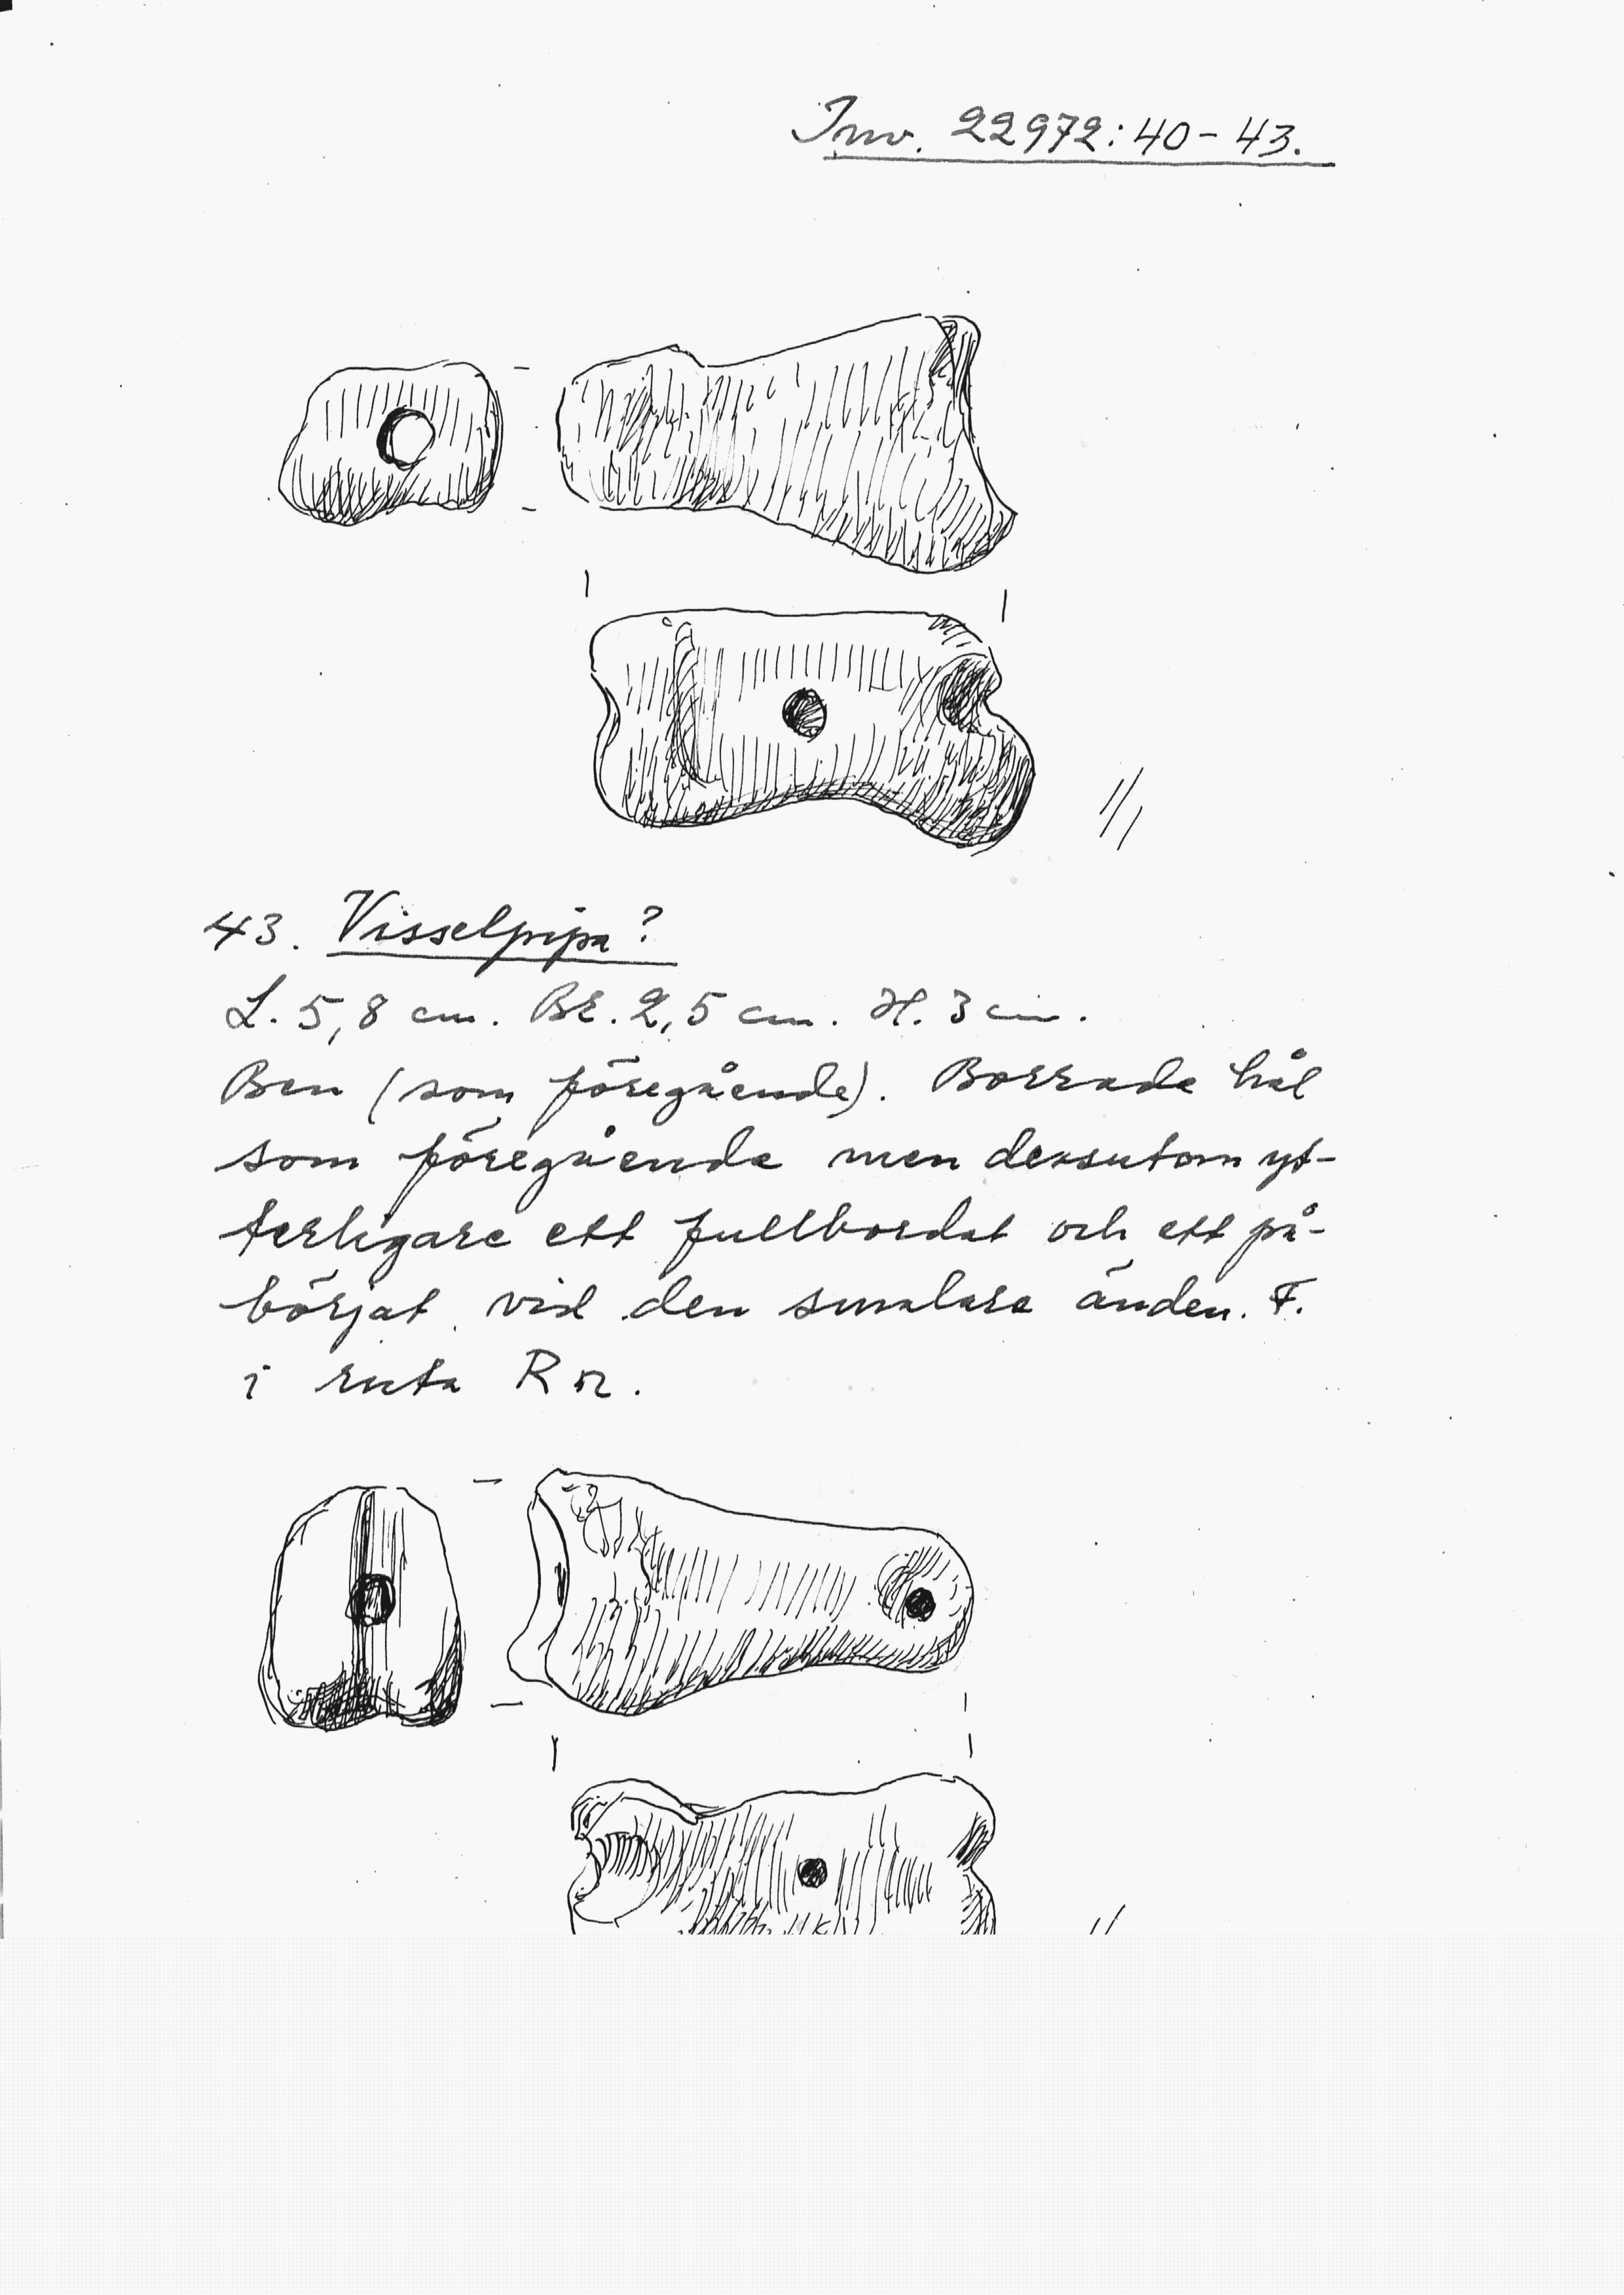 Inv. 22972:40-43.
1/1
43. Visselpipa?
L. 5,8 cm. Br. 2,5 cm. H. 3 cm.
Ben (som föregående). Borrade hål
som föregående men dessutom yt-
terligare ett fullbordat och ett på-
börjat vid den smalare änden. F.
i ruta R